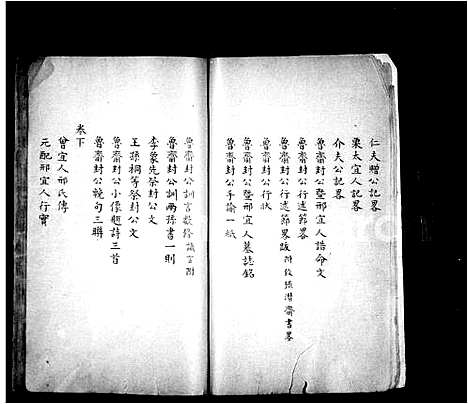 仁夫贈公記畧
栗太宜人記畧
介夫公記畧
魯齋封公暨邢宜人誥命文
魯齋封公行述節畧
魯齋封公行述節畧跋附攷張潛齋書畧
魯齋封公行狀
魯齋封公暨邢宜人墓誌銘
魯齋封公手諭一紙
魯齋封公訓言數條議言附
魯齋封公訓兩孫書一則
李蒙先祭封公文
王孫桐等祭封公文
魯齋封公小像題詩三首
魯齋封公輓句三聯
卷下
曾宜人邢氏傳
元配邢宜人行實